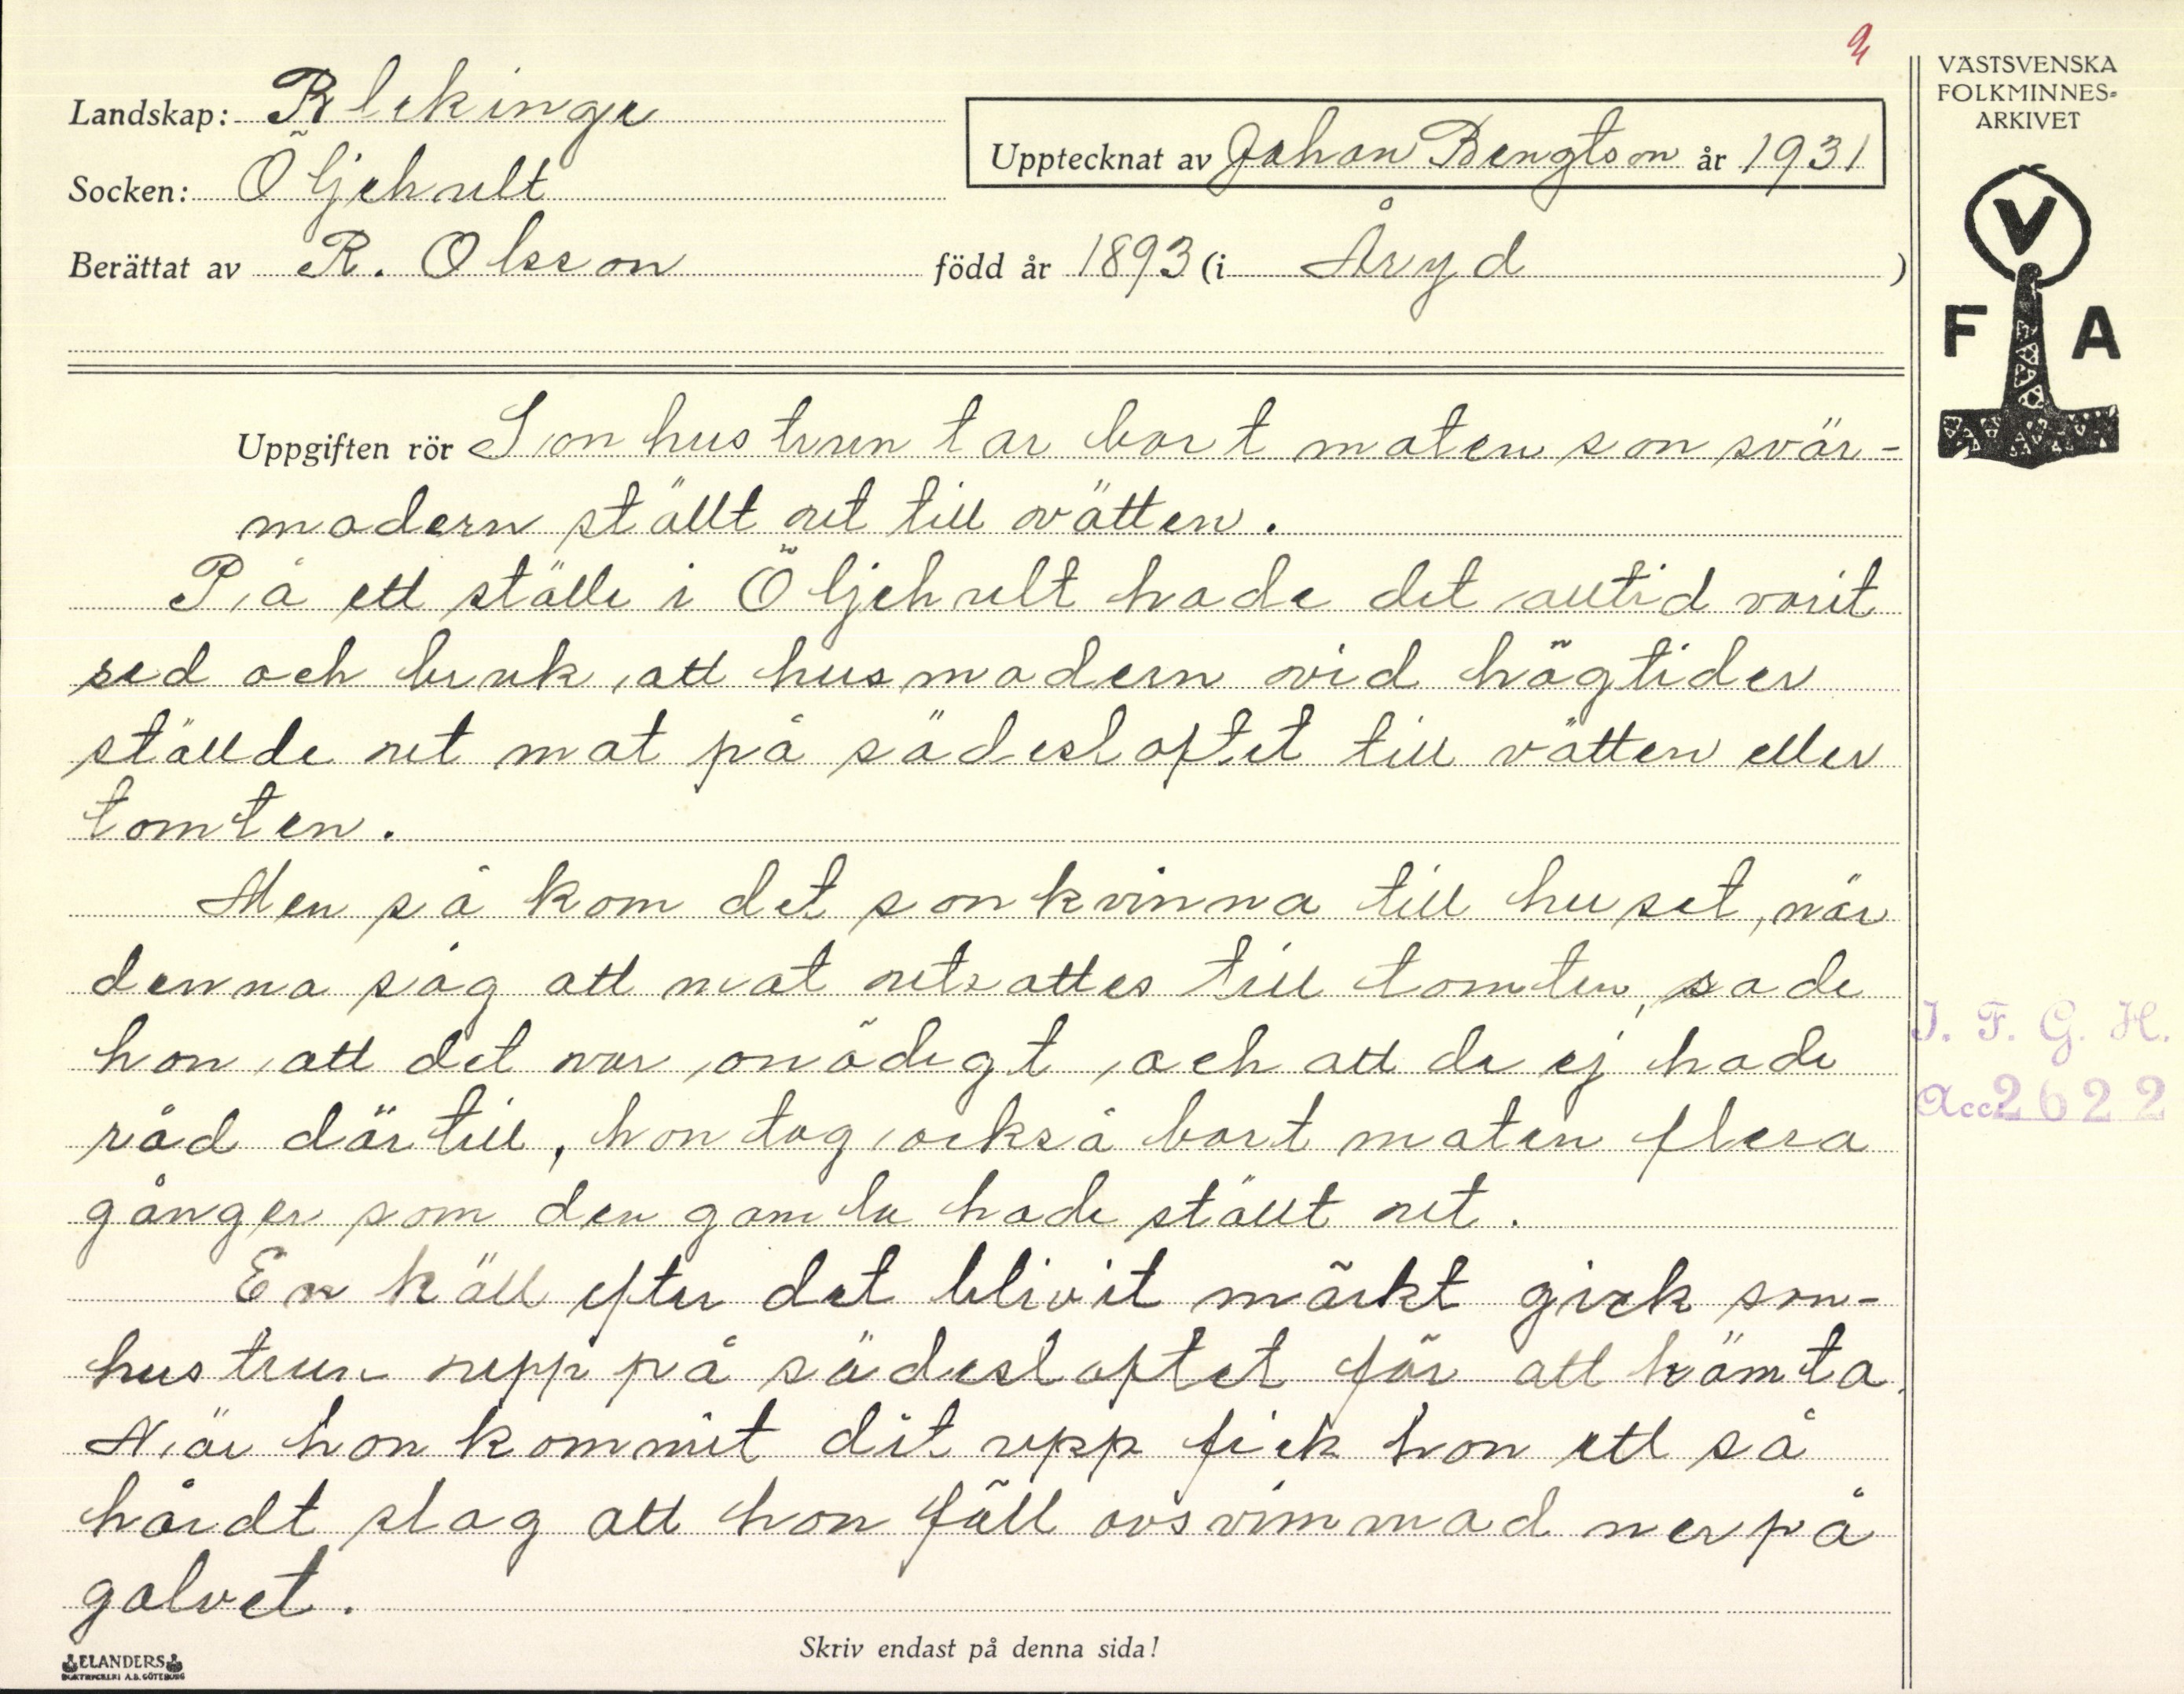 9
VÄSTSVENSKA
FOLKMINNES-
ARKIVET
V
F A
Landskap: Blekinge
Socken: Öljehult
Upptecknat av Johan Bengtson år 1931
Berättat av R. Olsson född år 1893 (i Åryd )
Uppgiften rör Sonhustrun tar bort maten som svär-
modern ställt ut till vätten.
På ett ställe i Öljehult hade det alltid varit
sed och bruk att husmodern vid högtider
ställde ut mat på sädesloftet till vätten eller
tomten.
Men så kom det sonkvinna till huset, när
denna såg att mat utsattes till tomten, sade
hon att det var onödigt och att de ej hade
råd därtill, hon tog också bort maten flera
gånger som den gamla hade ställt ut.
En käll efter det blivit mörkt gick son-
hustrun upp på sädesloftet för att hämta.
När hon kommit dit upp fick hon ett så
hårdt slag att hon föll avsvimmad ner på
golvet.
I. F. G. H.
Acc 2622
Skriv endast på denna sida!
ELANDERS
BOKTRYCKERI A.B. GÖTEBORG